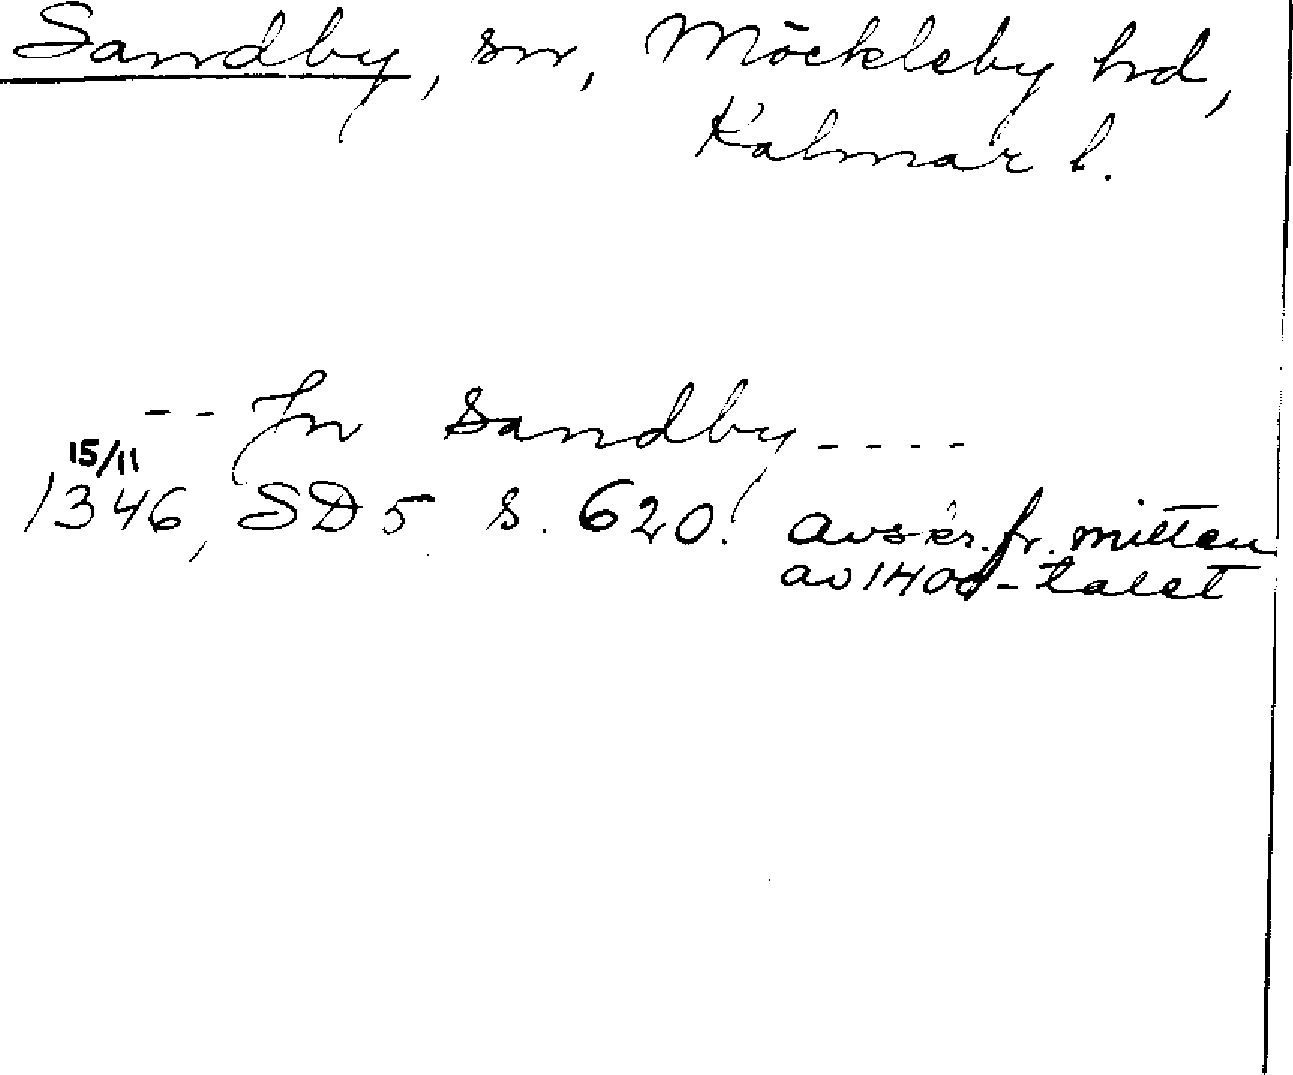 Sandby, sn, Möckleby hd,
Kalmar l.
-- In Sandby ----
15/11
1346, SD 5 s. 620. avskr. fr. mitten
av 1400-talet